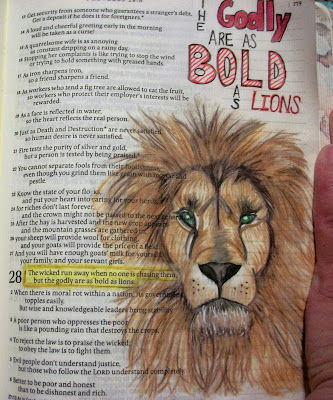 THE
Godly
ARE AS
BOLD
AS
LIONS
13 Get security from someone who guarantees a stranger's debt.
Get a deposit if he does it for foreigners.*
14 A loud and cheerful greeting early in the morning
will be taken as a curse!
15 A quarrelsome wife is as annoying
as constant dripping on a rainy day.
16 Stopping her complaints is like trying to stop the wind
or trying to hold something with greased hands.
17 As iron sharpens iron,
so a friend sharpens a friend.
18 As workers who tend a fig tree are allowed to eat the fruit,
so workers who protect their employer's interests will be
rewarded.
19 As a face is reflected in water,
so the heart reflects the real person.
20 Just as Death and Destruction* are never satisfied,
so human desire is never satisfied.
21 Fire tests the purity of silver and gold,
but a person is tested by being praised.*
22 You cannot separate fools from their foolishness,
even though you grind them like grain with mortar and
pestle.
23 Know the state of your flocks,
and put your heart into caring for your herds,
24 for riches don't last forever,
and the crown might not be passed to the next
25 After the hay is harvested and the new crop appears
and the mountain grasses are gathered in,
26 your sheep will provide wool for clothing,
and your goats will provide the price of a field.
27 And you will have enough goats' milk for yourself,
your family, and your servant girls.
28 The wicked run away when no one is chasing them,
but the godly are as bold as lions.
2 When there is moral rot within a nation, its government
topples easily.
But wise and knowledgeable leaders bring stability.
3 A poor person who oppresses the poor
is like a pounding rain that destroys the crops.
4 To reject the law is to praise the wicked;
to obey the law is to fight them.
5 Evil people don't understand justice,
but those who follow the LORD understand completely.
6 Better to be poor and honest
than to be dishonest and rich.